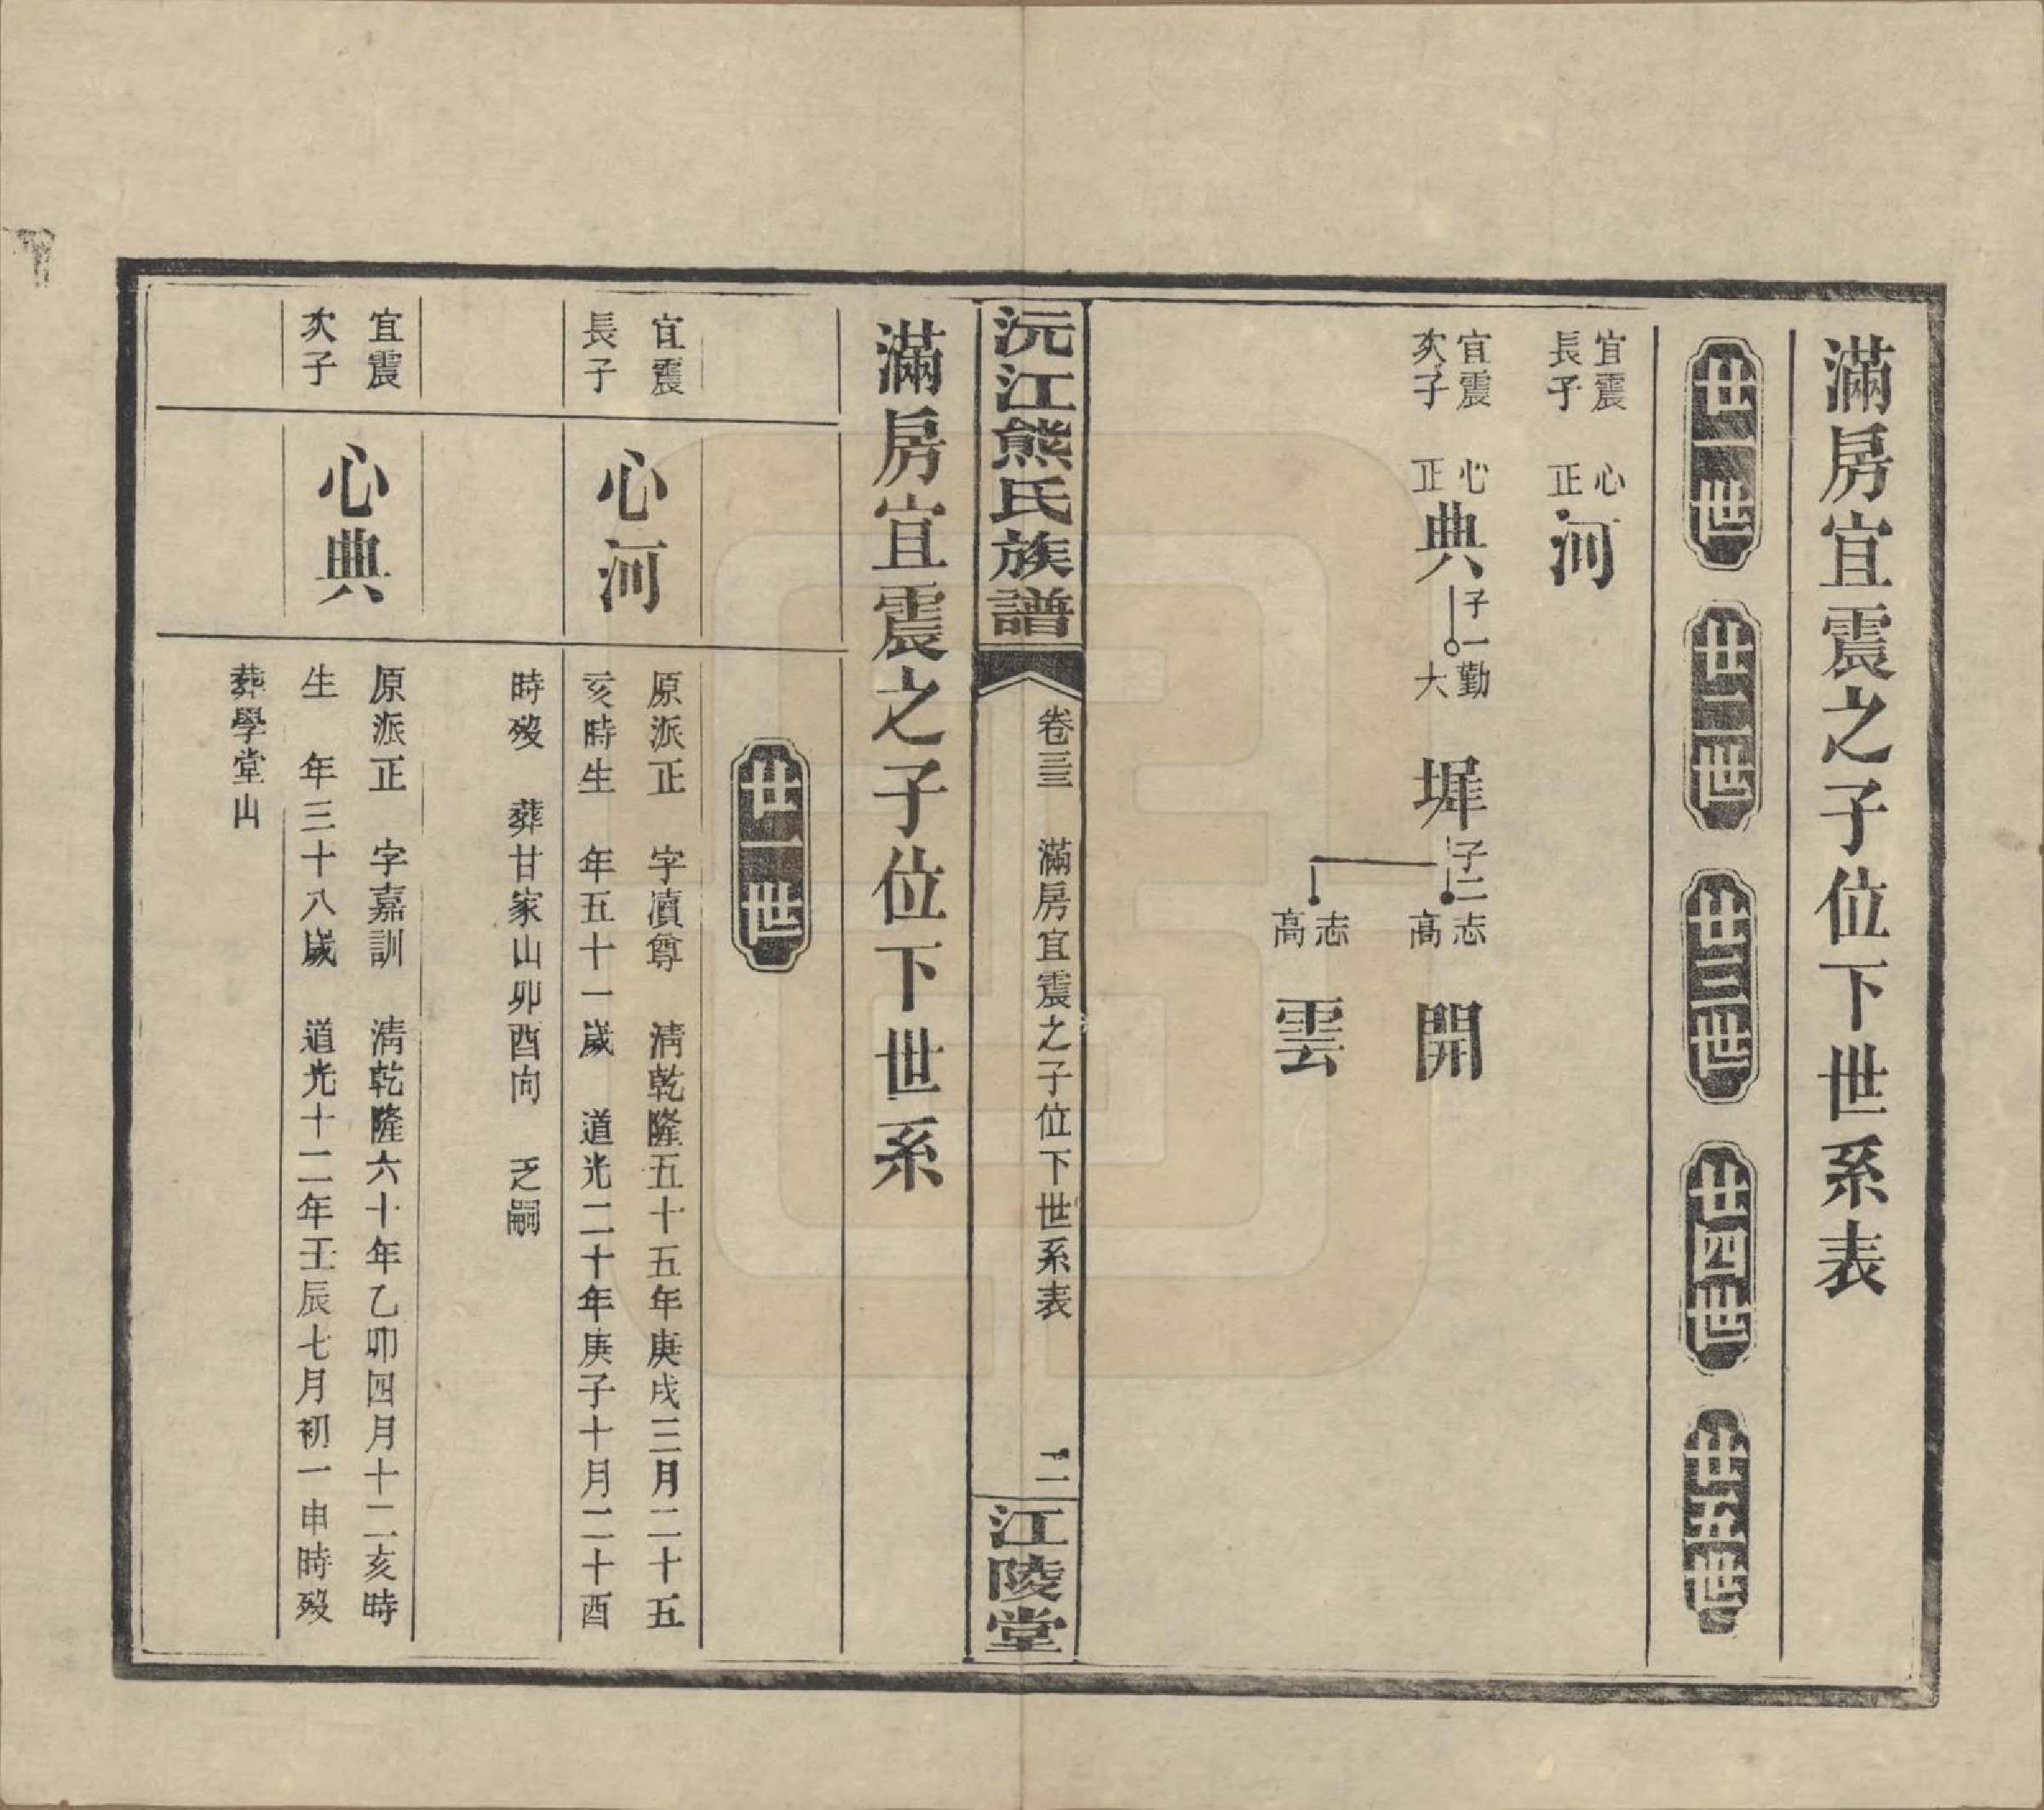 滿房宜震之子位下世系表
廿一世
廿二世
廿三世
廿四世
廿五世
宜震
長子
心
正
河
宜震
次子
心
正
典
子一
勤
大
墀
子二
志
高
開
志
高
雲
沅江熊氏族譜
卷三三
滿房宜震之子位下世系表
二
江陵堂
滿房宜震之子位下世系
廿一世
宜震
長子
心河
原派正 字瀆尊 清乾隆五十五年庚戌三月二十五
亥時生 年五十一歲 道光二十年庚子十月二十酉
時歿 葬甘家山卯酉向 乏嗣
宜震
次子
心典
原派正 字嘉訓 清乾隆六十年乙卯四月十二亥時
生 年三十八歲 道光十二年壬辰七月初一申時歿
葬學堂山